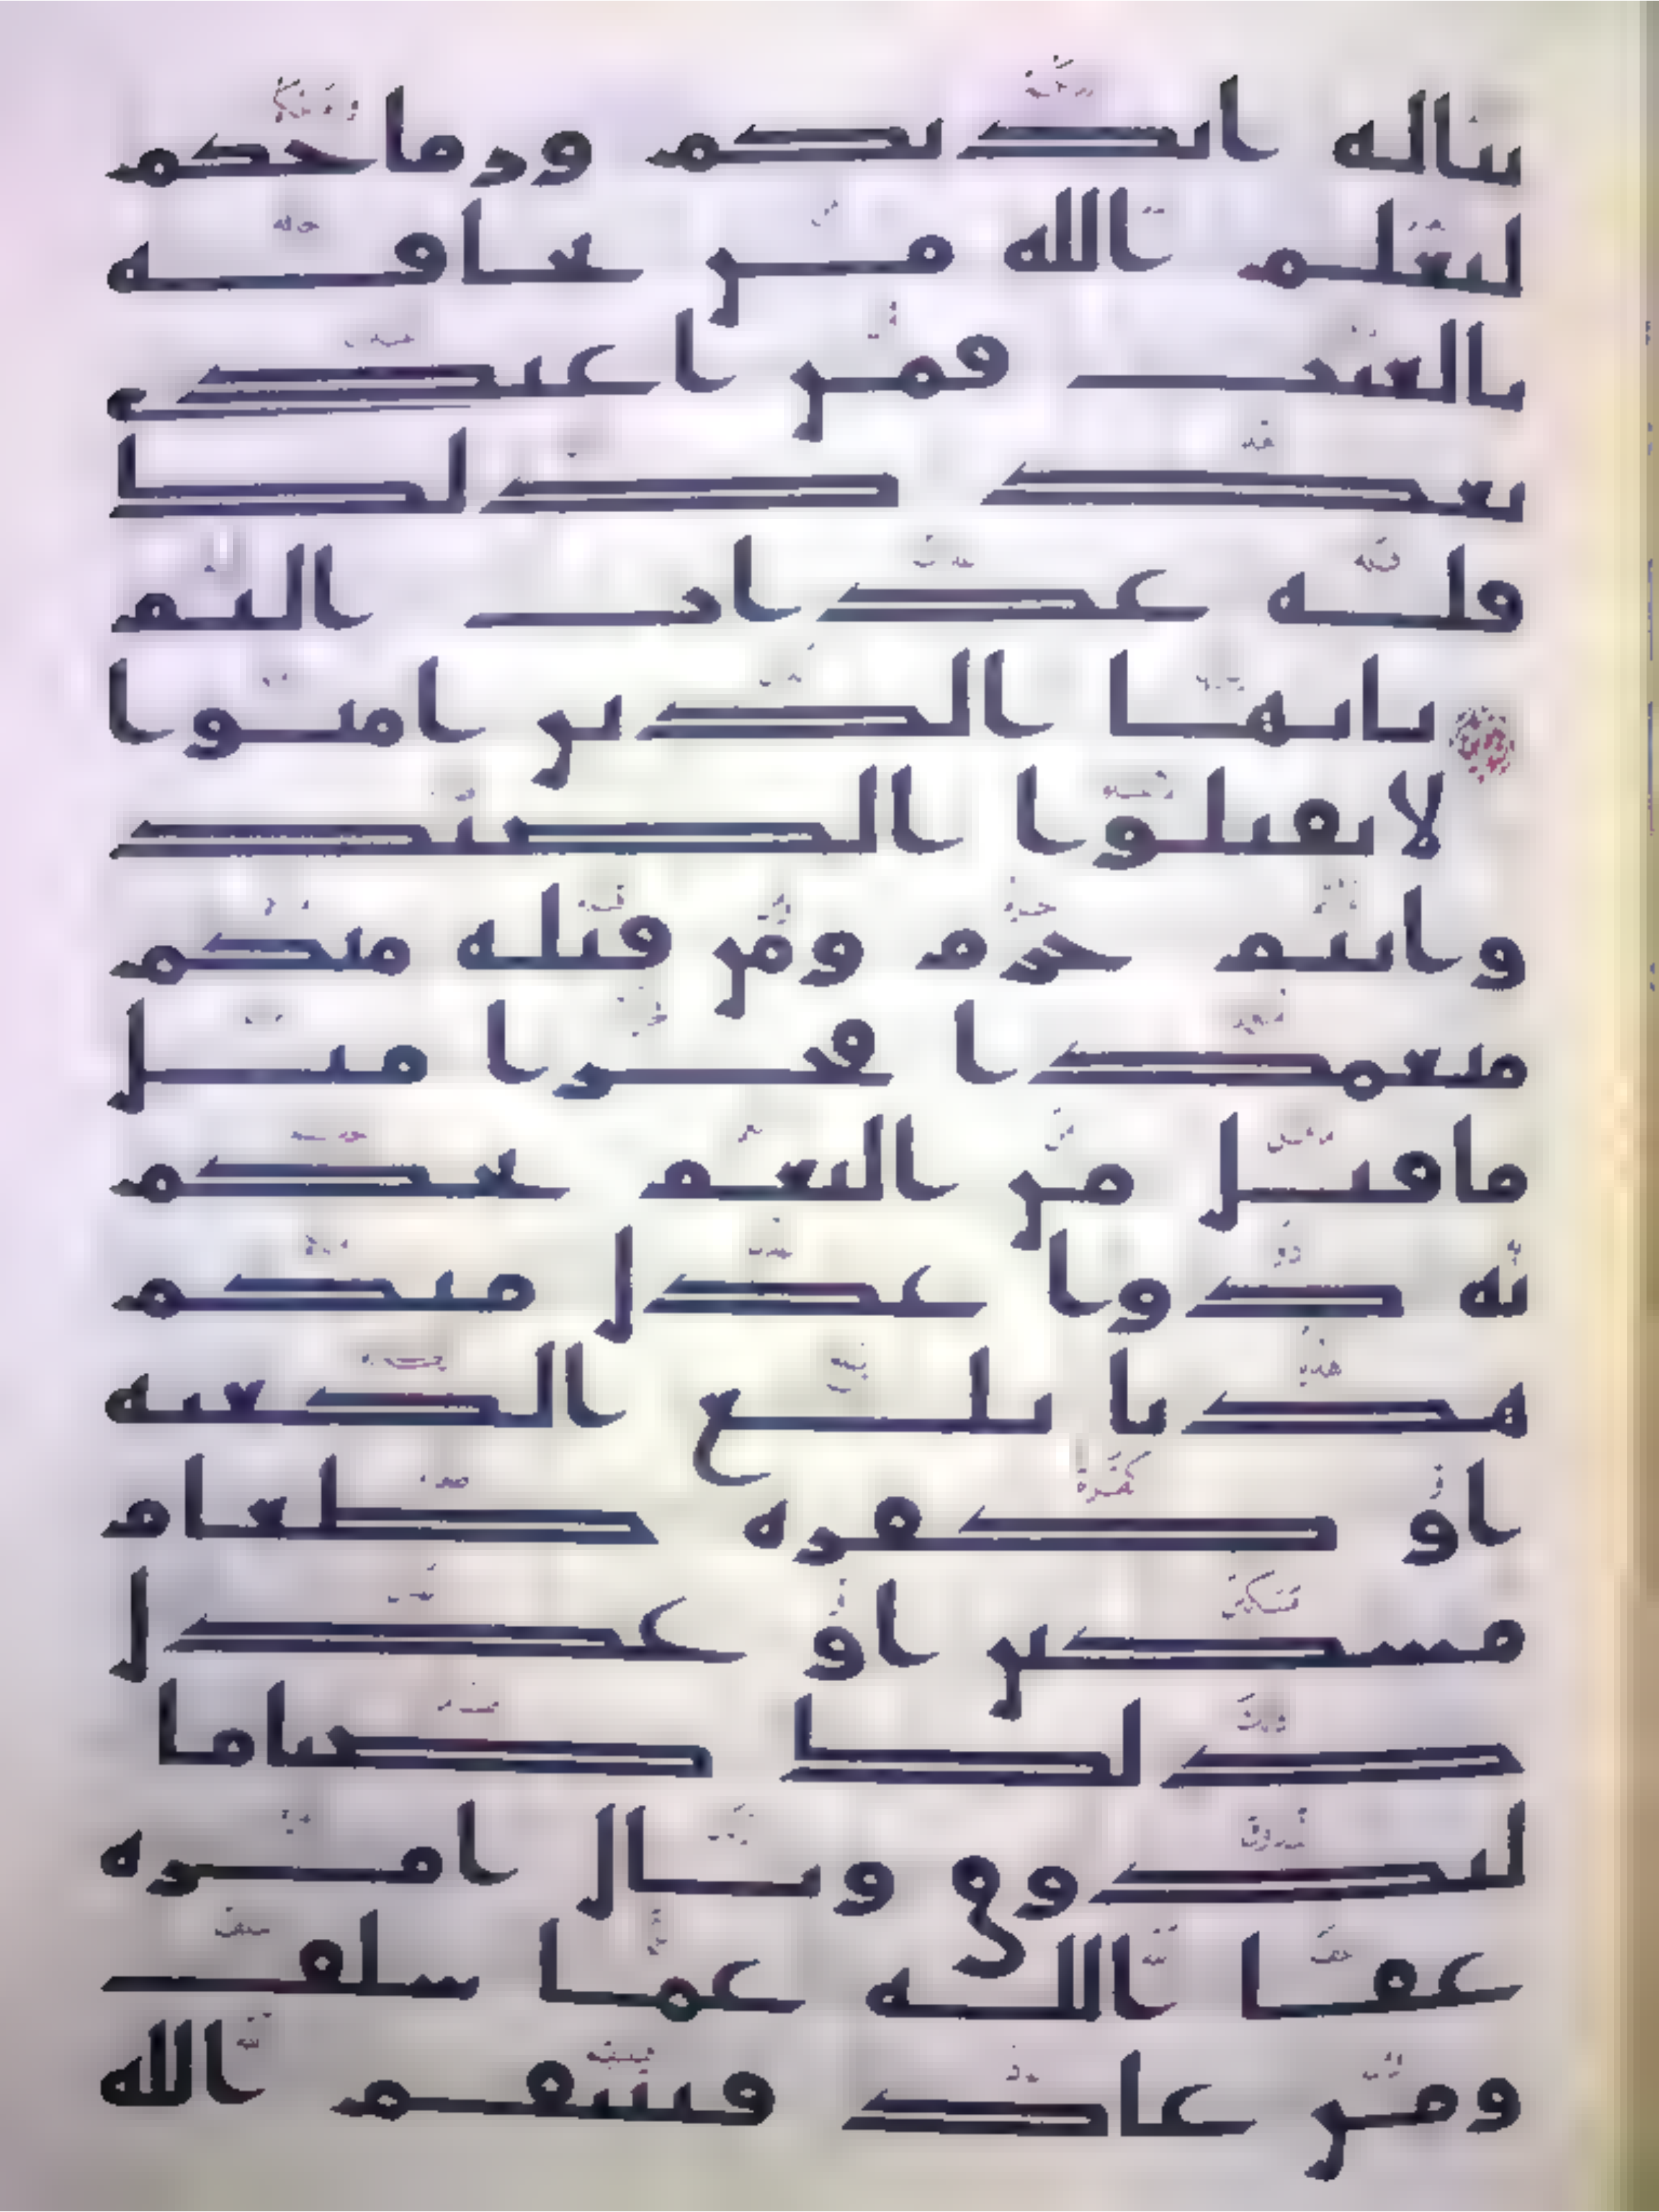 تناله ايديكم ورماحكم
ليعلم الله من يخافه
بالغيب فمن اعتدى
بعد ذلك
فله عذاب اليم
يايها الذين امنوا
لا تقتلوا الصيد
وانتم حرم ومن قتله منكم
متعمدا فجزا مثل
ما قتل من النعم يحكم
به ذوا عدل منكم
هديا بلغ الكعبه
او كفره طعام
مسكين او عدل
ذلك صياما
ليذوق وبال امره
عفا الله عما سلف
ومن عاد فينتقم الله